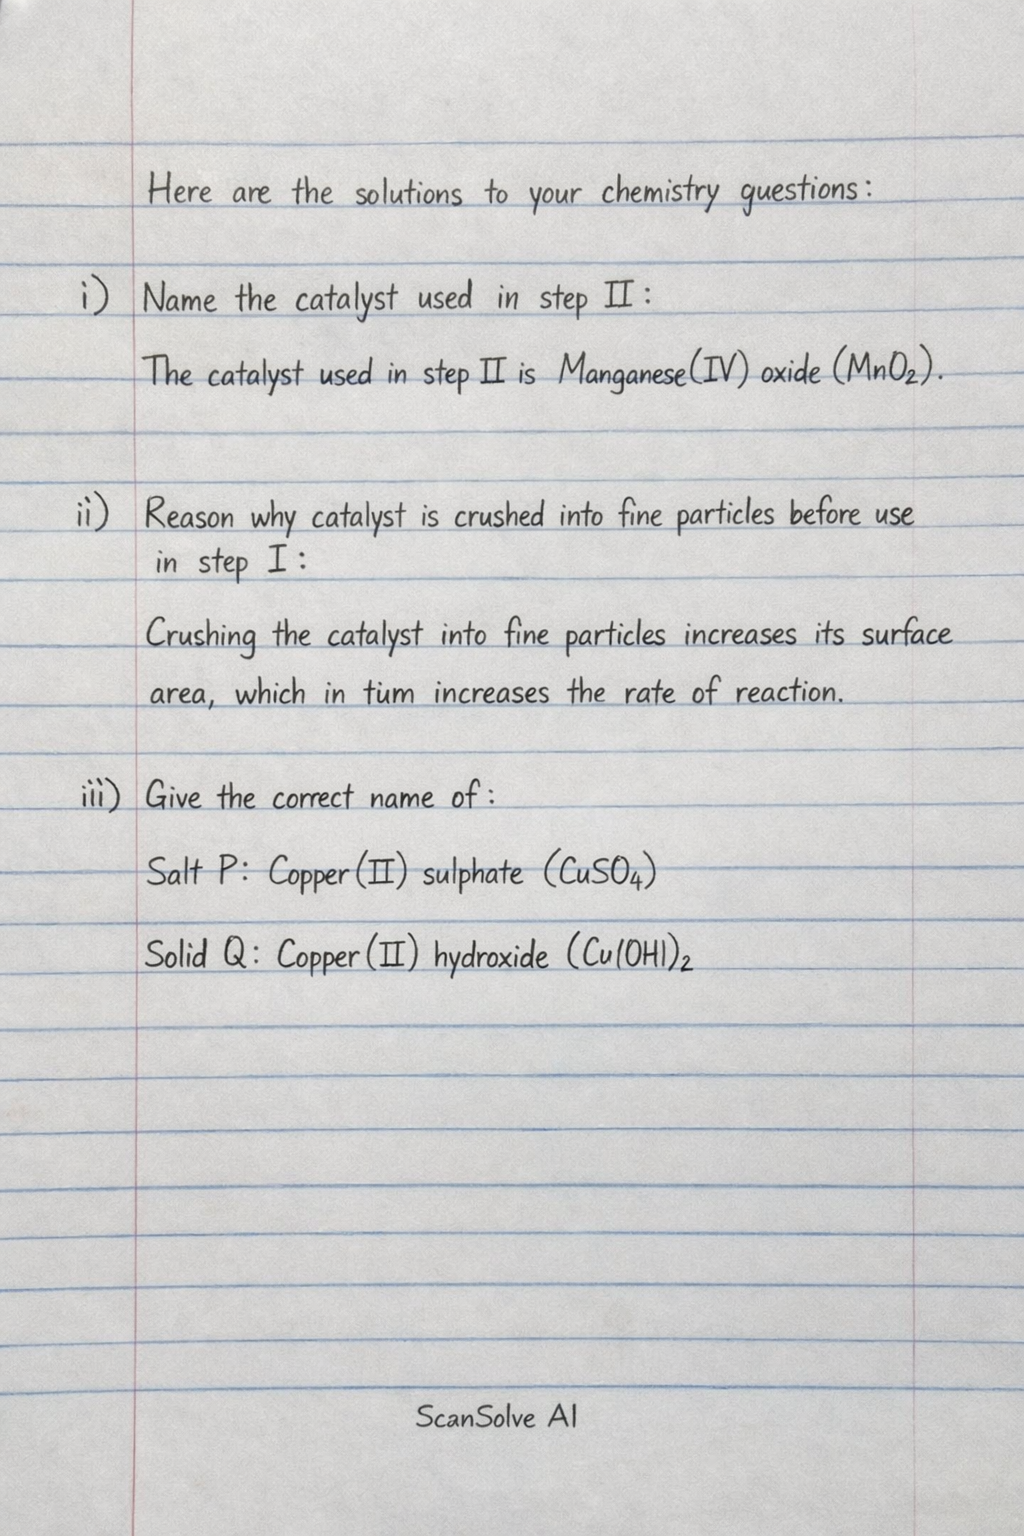 Here are the solutions to your chemistry questions:
i) Name the catalyst used in step II:
The catalyst used in step II is Manganese(IV) oxide (MnO₂).
ii) Reason why catalyst is crushed into fine particles before use
in step I:
Crushing the catalyst into fine particles increases its surface
area, which in tum increases the rate of reaction.
iii) Give the correct name of:
Salt P: Copper(II) sulphate (CuSO₄)
Solid Q: Copper(II) hydroxide (Cu(OH))₂
ScanSolve AI